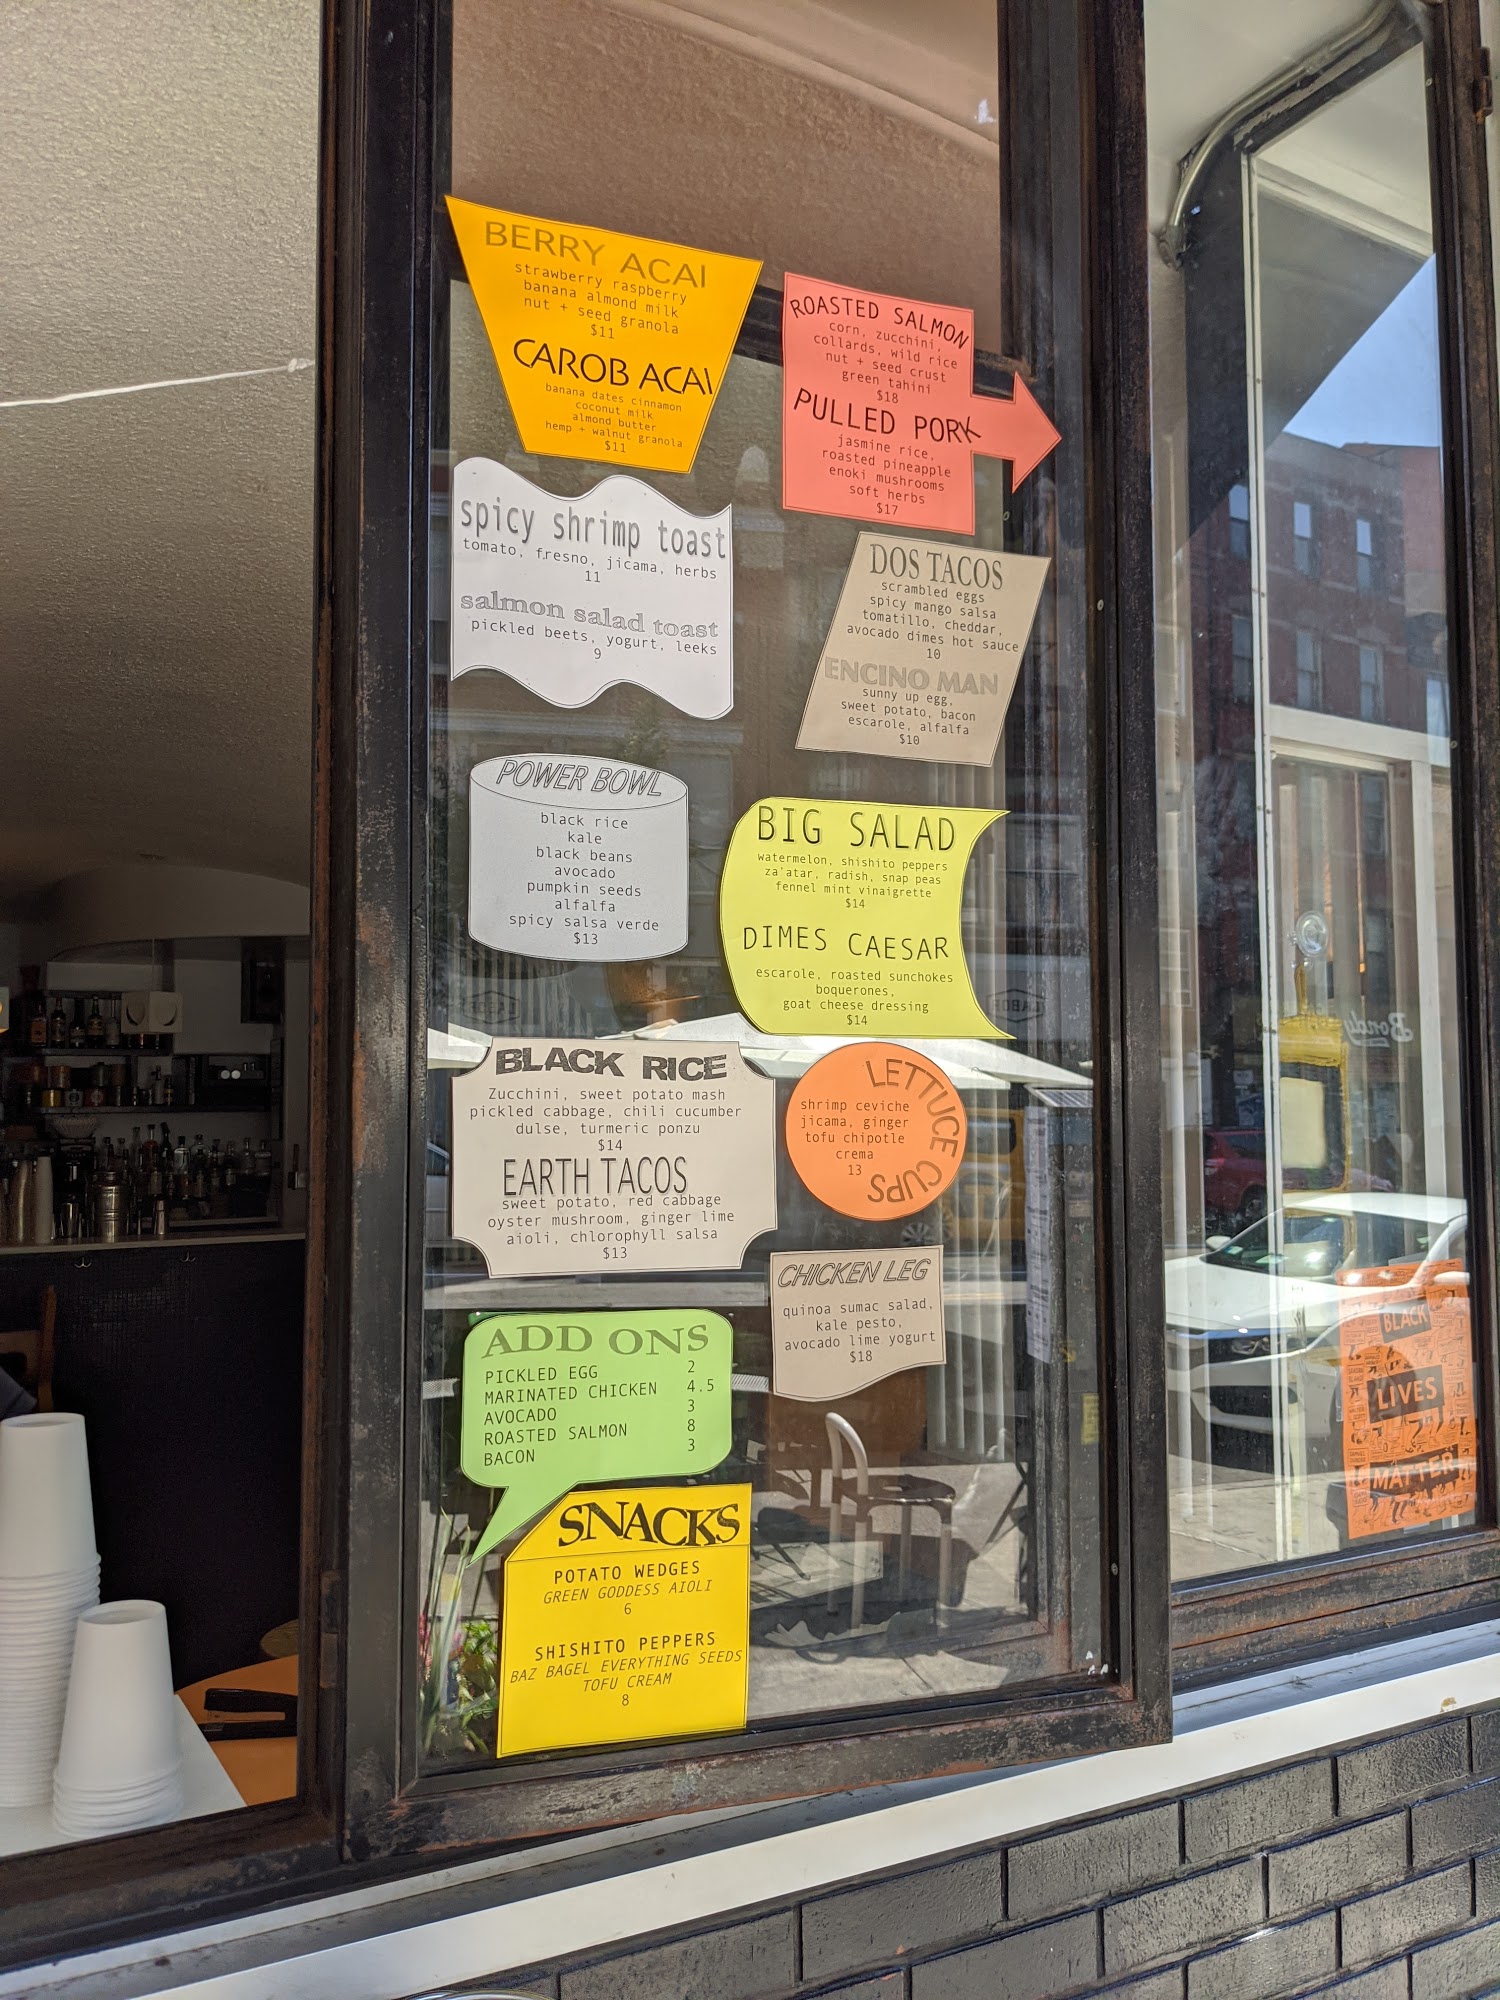 BERRY ACAI
strawberry raspberry
banana almond milk
nut + seed granola
$11
CAROB ACAI
banana dates cinnamon
coconut milk
almond butter
hemp + walnut granola
$11
ROASTED SALMON
corn, zucchini,
collards, wild rice
nut + seed crust
green tahini
$18
PULLED PORK
jasmine rice,
roasted pineapple
enoki mushrooms
soft herbs
$17
spicy shrimp toast
tomato, fresno, jicama, herbs
11
salmon salad toast
pickled beets, yogurt, leeks
9
DOS TACOS
scrambled eggs
spicy mango salsa
tomatillo, cheddar,
avocado dimes hot sauce
10
ENCINO MAN
sunny up egg,
sweet potato, bacon
escarole, alfalfa
$10
POWER BOWL
black rice
kale
black beans
avocado
pumpkin seeds
alfalfa
spicy salsa verde
$13
BIG SALAD
watermelon, shishito peppers
za'atar, radish, snap peas
fennel mint vinaigrette
$14
DIMES CAESAR
escarole, roasted sunchokes
boquerones,
goat cheese dressing
$14
BLACK RICE
Zucchini, sweet potato mash
pickled cabbage, chili cucumber
dulse, turmeric ponzu
$14
EARTH TACOS
sweet potato, red cabbage
oyster mushroom, ginger lime
aioli, chlorophyll salsa
$13
LETTUCE CUPS
shrimp ceviche
jicama, ginger
tofu chipotle
crema
13
CHICKEN LEG
quinoa sumac salad,
kale pesto,
avocado lime yogurt
$18
ADD ONS
PICKLED EGG 2
MARINATED CHICKEN 4.5
AVOCADO 3
ROASTED SALMON 8
BACON 3
SNACKS
POTATO WEDGES
GREEN GODDESS AIOLI
6
SHISHITO PEPPERS
BAZ BAGEL EVERYTHING SEEDS
TOFU CREAM
8
Bondy
BLACK
LIVES
MATTER